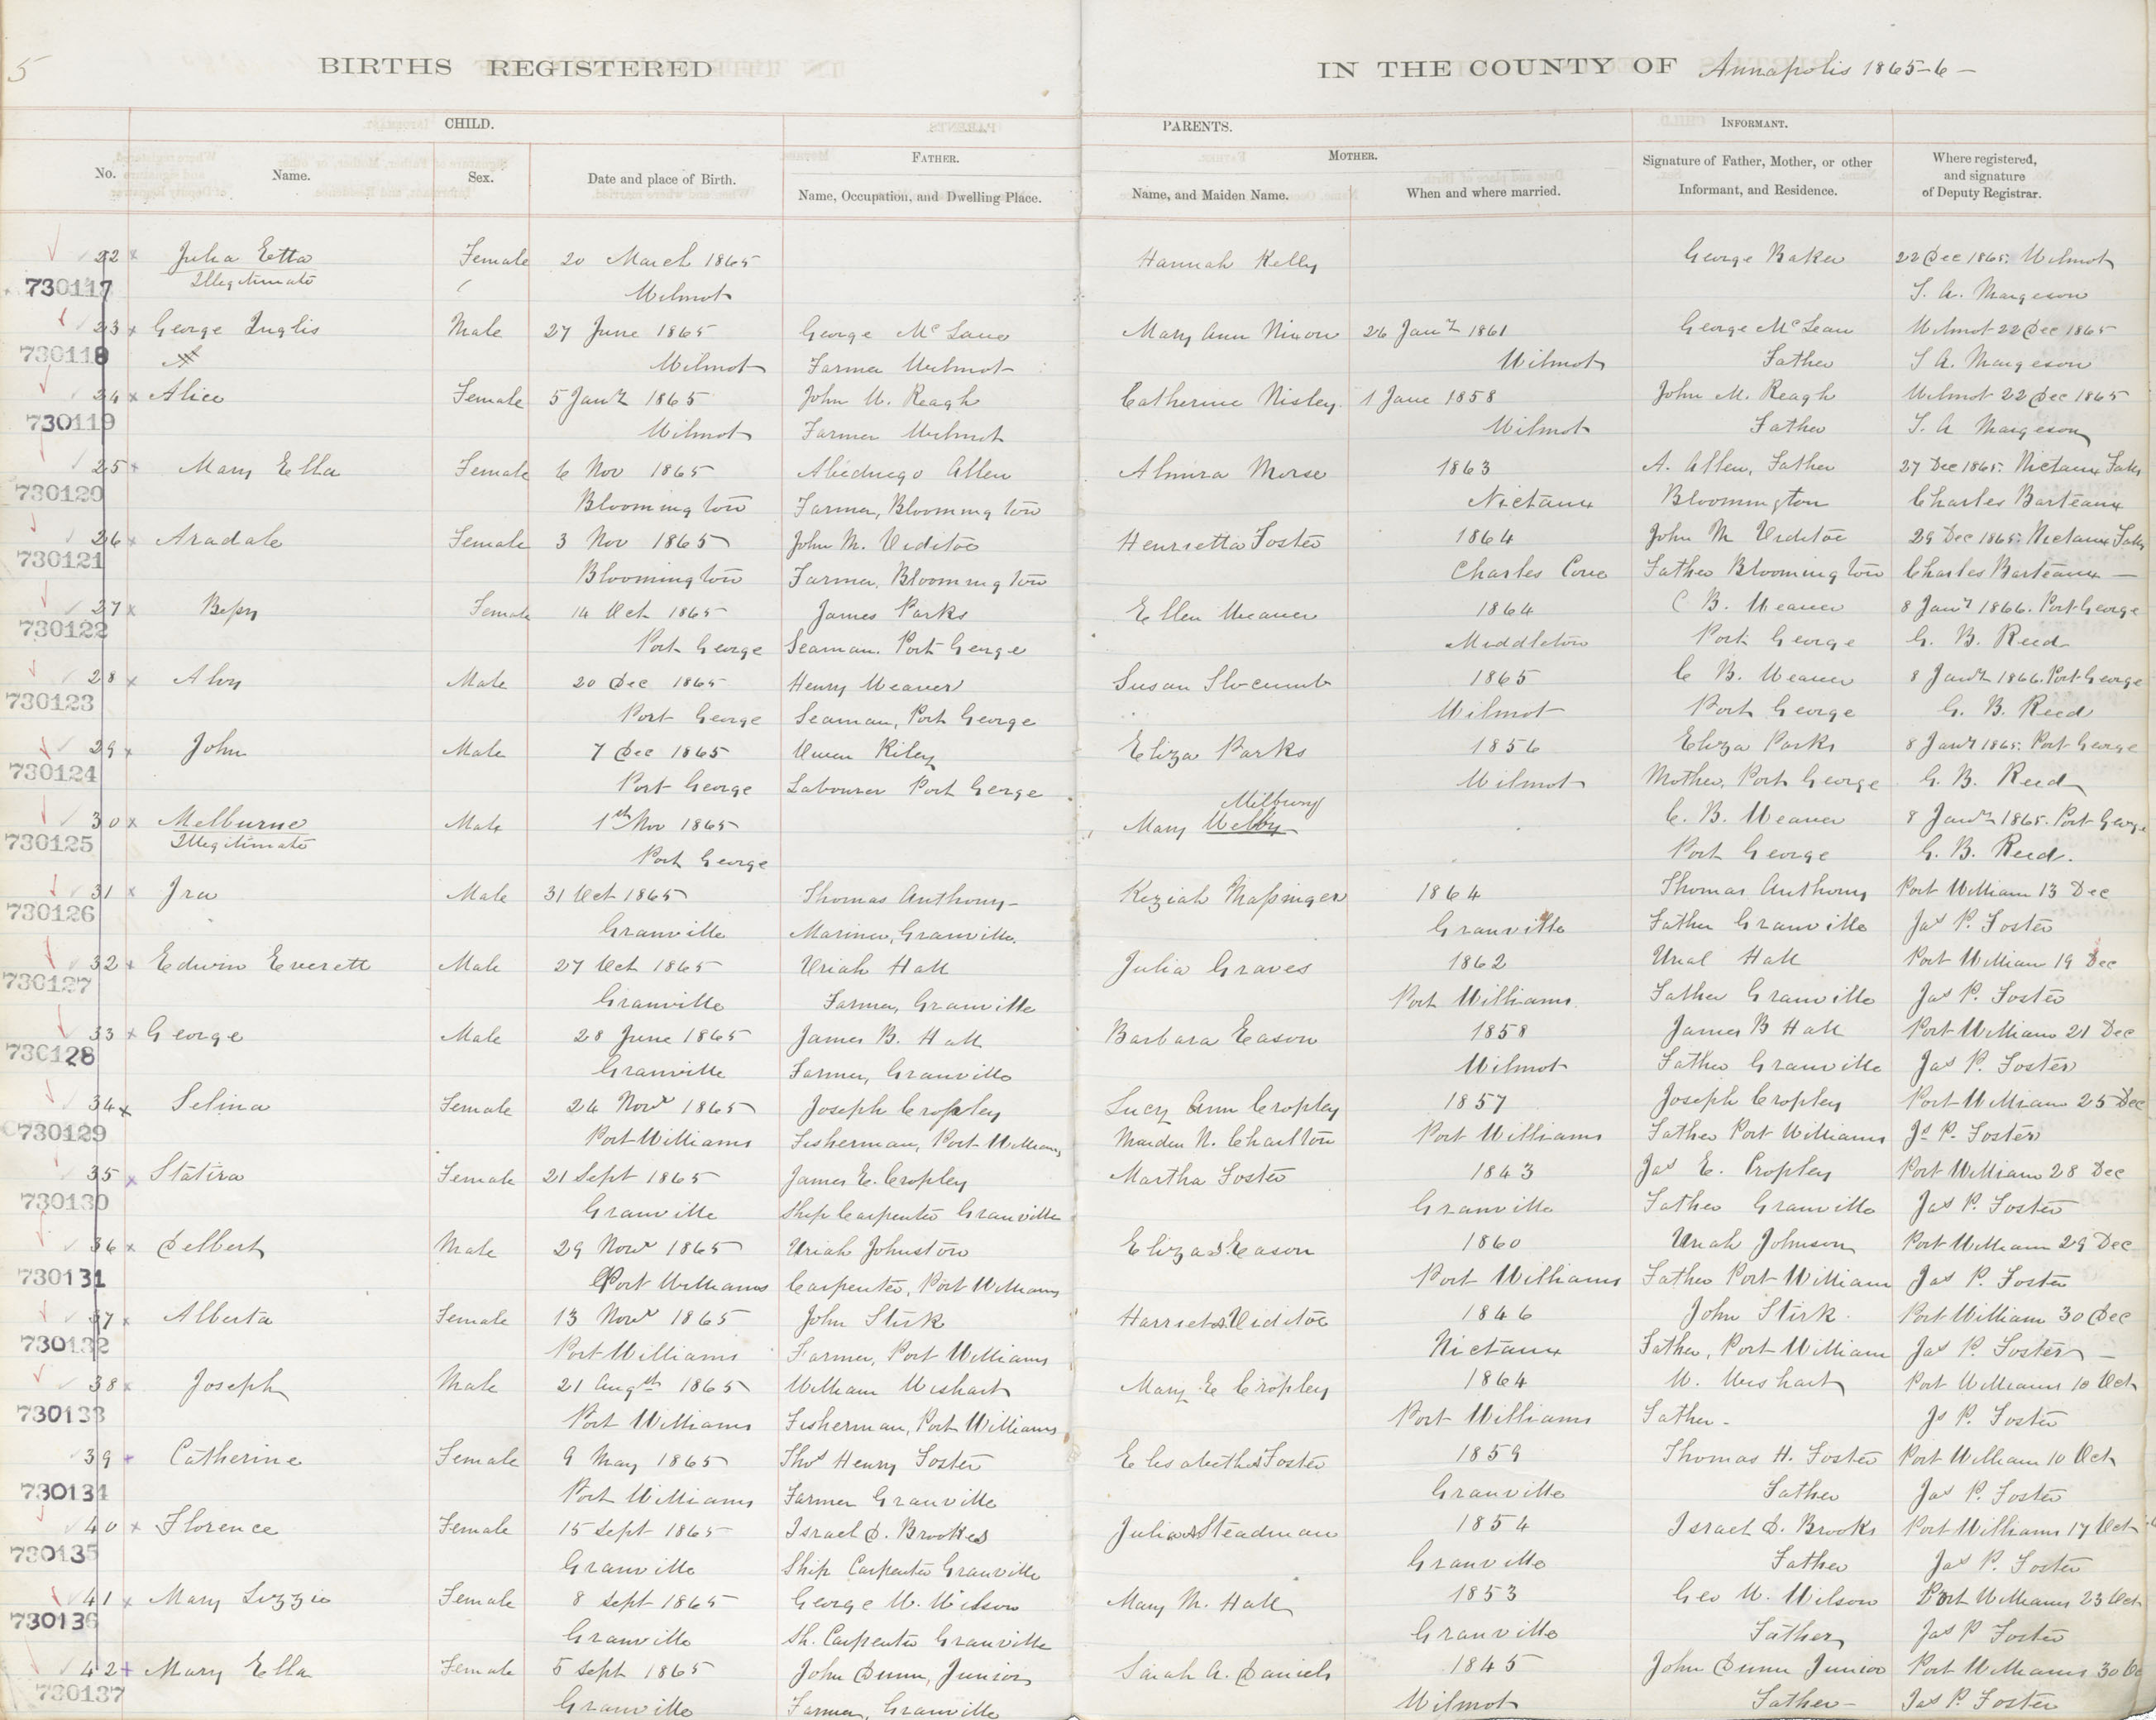 5
BIRTHS REGISTERED IN THE COUNTY OF Annapolis 1865-6-
CHILD. PARENTS. INFORMANT.
FATHER. MOTHER.
No. Name. Sex. Date and place of Birth. Name, Occupation, and Dwelling Place. Name, and Maiden Name. When and where married. Signature of Father, Mother, or other Informant, and Residence. Where registered, and signature of Deputy Registrar.
22 x Julia Etta Female 20 March 1865 Hannah Kelly George Baker 22 Dec 1865. Wilmot
730117 Illegitimate Wilmot S. A. Margeson
23 x George Inglis Male 27 June 1865 George Mc Lane Mary Ann Nixon 26 Jany 1861 George McLean Wilmot 22 Dec 1865
730118 Wilmot Farmer Wilmot Wilmot Father S A. Margeson
24 x Alice Female 5 Jany 1865 John W. Reagh Catherine Nisley 1 June 1858 John M. Reagh Wilmot 22 Dec 1865
730119 Wilmot Farmer Wilmot Wilmot Father S. A Margeson
25 x Mary Ella Female 6 Nov 1865 Abednego Allen Almira Morse 1863 A. Allen, Father 27 Dec 1865. Nictaux Falls
730120 Bloomington Farmer, Bloomington Nictaux Bloomington Charles Barteaux
26 x Aradale Female 3 Nov 1865 John M. Viditoe Henrietta Foster 1864 John M Viditoe 29 Dec 1865. Nictaux Falls
730121 Bloomington Farmer, Bloomington Charles Cove Father Bloomington Charles Barteaux —
27 x Bessy Female 14 Oct 1865 James Parks Ellen Weaver 1864 C B. Weaver 8 Jany 1866. Port George
730122 Port George Seaman. Port George Middleton Port George G. B. Reed
28 x Alvy Male 20 Dec 1865 Henry Weaver Susan Slocumb 1865 C B. Weaver 8 Jany 1866. Port George
730123 Port George Seaman, Port George Wilmot Port George G. B. Reed
29 x John Male 7 Dec 1865 Owen Riley Eliza Parks 1856 Eliza Parks 8 Jany 1865. Port George
730124 Port George Labourer Port George Wilmot Mother, Port George G. B. Reed
Milbury
30 x Melburne Male 1st Nov 1865 Mary Welby C. B. Weaver 8 Jany 1865. Port George
730125 Illegitimate Port George Port George G. B. Reed.
31 x Ira Male 31 Oct 1865 Thomas Anthony Keziah Massinger 1864 Thomas Anthony Port William 13 Dec
730126 Granville Mariner, Granville. Granville Father Granville Jas P. Foster
32 x Edwin Everett Male 27 Oct 1865 Uriah Hall Julia Graves 1862 Urial Hall Port William 19 Dec
730127 Granville Farmer, Granville Port Williams. Father Granville Jas P. Foster
33 x George Male 28 June 1865 James B. Hall Barbara Eason 1858 James B Hall Port William 21 Dec
730128 Granville Farmer, Granville Wilmot Father Granville Jas P. Foster
34 x Selina Female 24 Novr 1865 Joseph Cropley Lucy Ann Cropley 1857 Joseph Cropley Port William 25 Dec
730129 Port Williams Fisherman, Port Williams Maiden N. Charlton Port Williams Father Port Williams Js P. Foster
35 x Statira Female 21 Sept 1865 James E. Cropley Martha Foster 1843 Jas E. Cropley Port William 28 Dec
730130 Granville Ship Carpenter Granville Granville Father Granville Jas P. Foster
36 x Delbert Male 29 Novr 1865 Uriah Johnston Eliza Eason 1860 Uriah Johnson Port William 29 Dec
730131 Port Williams Carpenter, Port Williams Port Williams Father Port William Jas P. Foster
37 x Alberta Female 13 Novr 1865 John Stirk Harriet Viditoe 1846 John Stirk. Port William 30 Dec
730132 Port Williams Farmer, Port Williams Nictaux Father, Port William Jas P. Foster —
38 x Joseph Male 21 Augst 1865 William Wishart Mary E Cropley 1864 W. Wishart Port Williams 10 Oct
730133 Port Williams Fisherman, Port Williams Port Williams Father - Js P. Foster
39 x Catherine Female 9 May 1865 Thos Henry Foster Elisabeth Foster 1859 Thomas H. Foster Port William 10 Oct
730134 Port Williams Farmer Granville Granville Father Jas P. Foster
40 x Florence Female 15 Sept 1865 Israel D. Brookes Julia Steadman 1854 Israel D. Brooks Port Williams 17 Oct
730135 Granville Ship Carpenter Granville Granville Father Jas P. Foster
41 x Mary Lizzie Female 8 Sept 1865 George W. Wilson Mary M. Hall 1853 Geo W. Wilson Port Williams 23 Oct
730136 Granville Sh. Carpenter Granville Granville Father Jas P Foster
42 x Mary Ella Female 5 Sept 1865 John Dunn, Junior Sarah A. Daniels 1845 John Dunn Junior Port Williams 30 Oc
730137 Granville Farmer, Granville Wilmot Father - Jas P. Foster